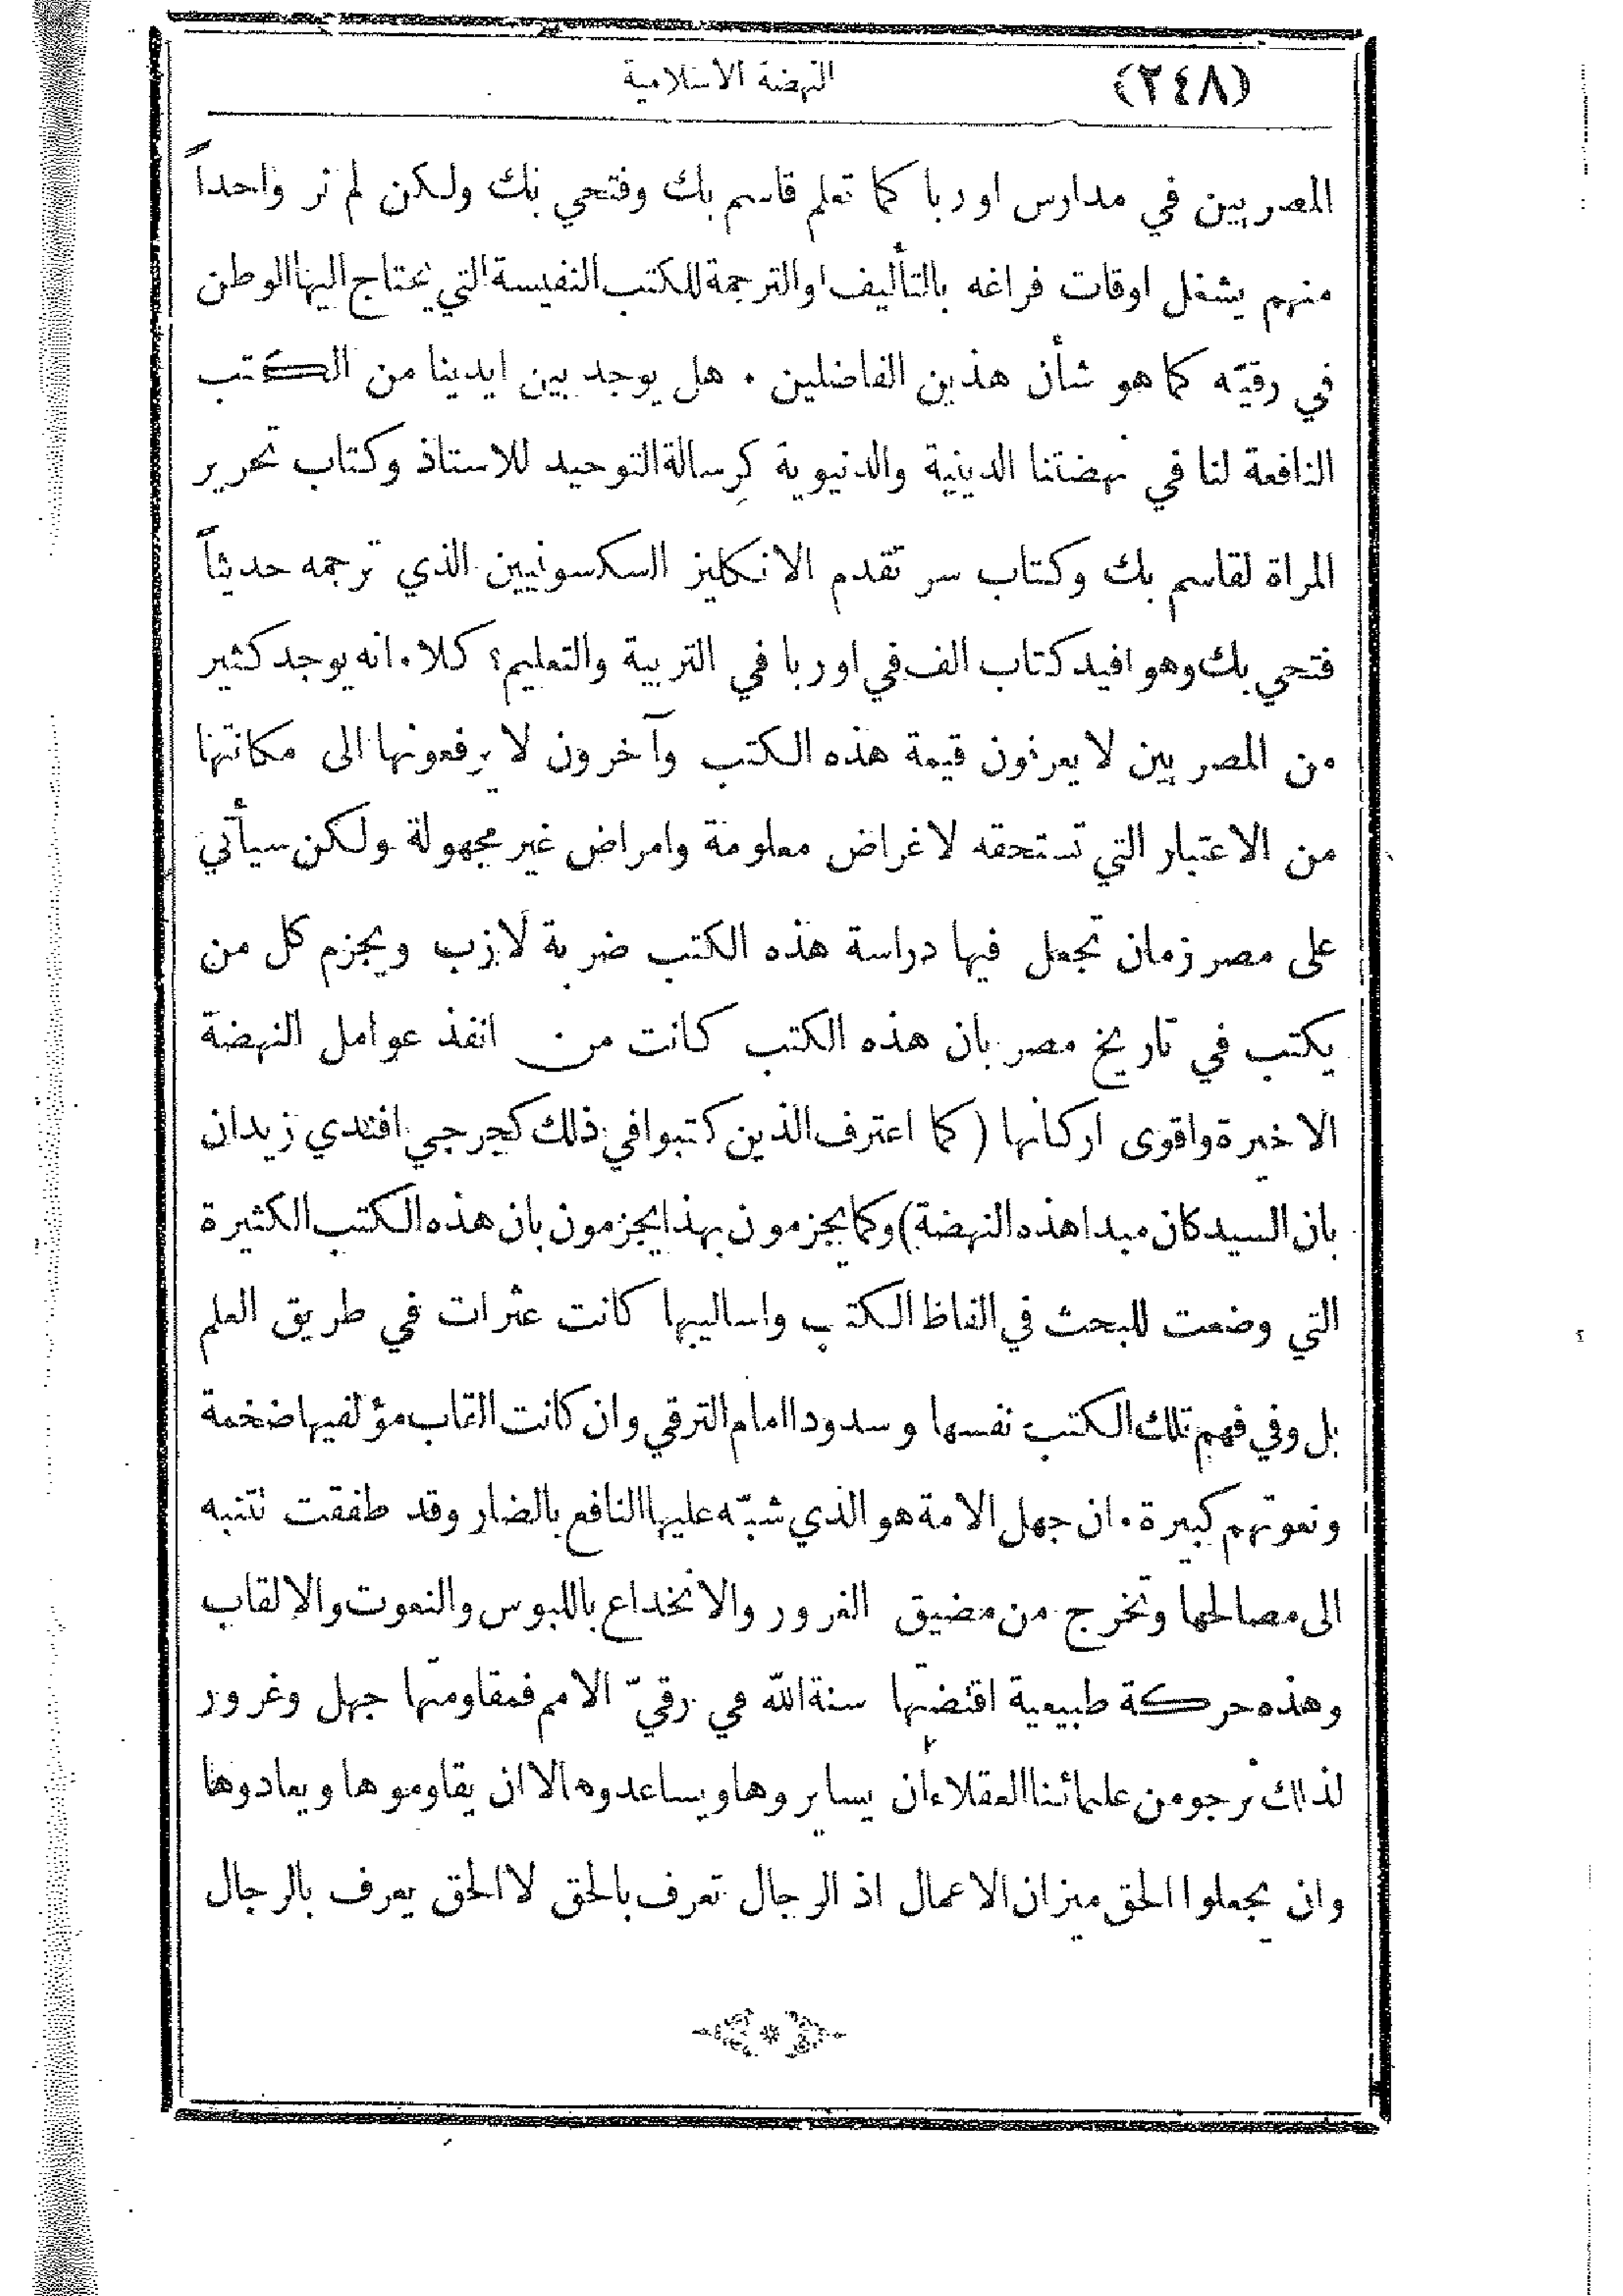 (٢٤٨) النهضة الاسلامية
المصريين في مدارس اوربا كما تعلم قاسم بك وفتحي بك ولكن لم نر واحداً
منهم يشغل اوقات فراغه بالتأليف او الترجمة للكتب النفيسة التي يحتاج اليها الوطن
في رقيّه كما هو شأن هذين الفاضلين . هل يوجد بين ايدينا من الكتب
النافعة لنا في نهضتنا الدينية والدنيوية كرسالة التوحيد للاستاذ وكتاب تحرير
المراة لقاسم بك وكتاب سر تقدم الانكليز السكسونيين الذي ترجمه حديثاً
فتحي بك وهو افيد كتاب الف في اوربا في التربية والتعليم؟ كلا . انه يوجد كثير
من المصريين لا يعرفون قيمة هذه الكتب وآخرون لا يرفعونها الى مكانتها
من الاعتبار التي تستحقه لاغراض معلومة وامراض غير مجهولة ولكن سيأتي
على مصر زمان تجعل فيها دراسة هذه الكتب ضربة لازب ويجزم كل من
يكتب في تاريخ مصر بان هذه الكتب كانت من انفذ عوامل النهضة
الاخيرة واقوى اركانها (كما اعترف الذين كتبوا في ذلك كجرجي افندي زيدان
بان السيد كان مبدا هذه النهضة) وكما يجزمون بهذا يجزمون بان هذه الكتب الكثيرة
التي وضعت للبحث في الفاظ الكتب واساليبها كانت عثرات في طريق العلم
بل وفي فهم تلك الكتب نفسها وسدودا امام الترقي وان كانت القاب مؤلفيها ضخمة
ونعوتهم كبيرة . ان جهل الامة هو الذي شبّه عليها النافع بالضار وقد طفقت تتنبه
الى مصالحها وتخرج من مضيق الغرور والانخداع باللبوس والنعوت والالقاب
وهذه حركة طبيعية اقتضتها سنة الله في رقيّ الامم فمقاومتها جهل وغرور
لذلك نرجو من علمائنا العقلاء أن يسايروها ويساعدوها لا ان يقاوموها ويعادوها
وان يجعلوا الحق ميزان الاعمال اذ الرجال تعرف بالحق لا الحق يعرف بالرجال